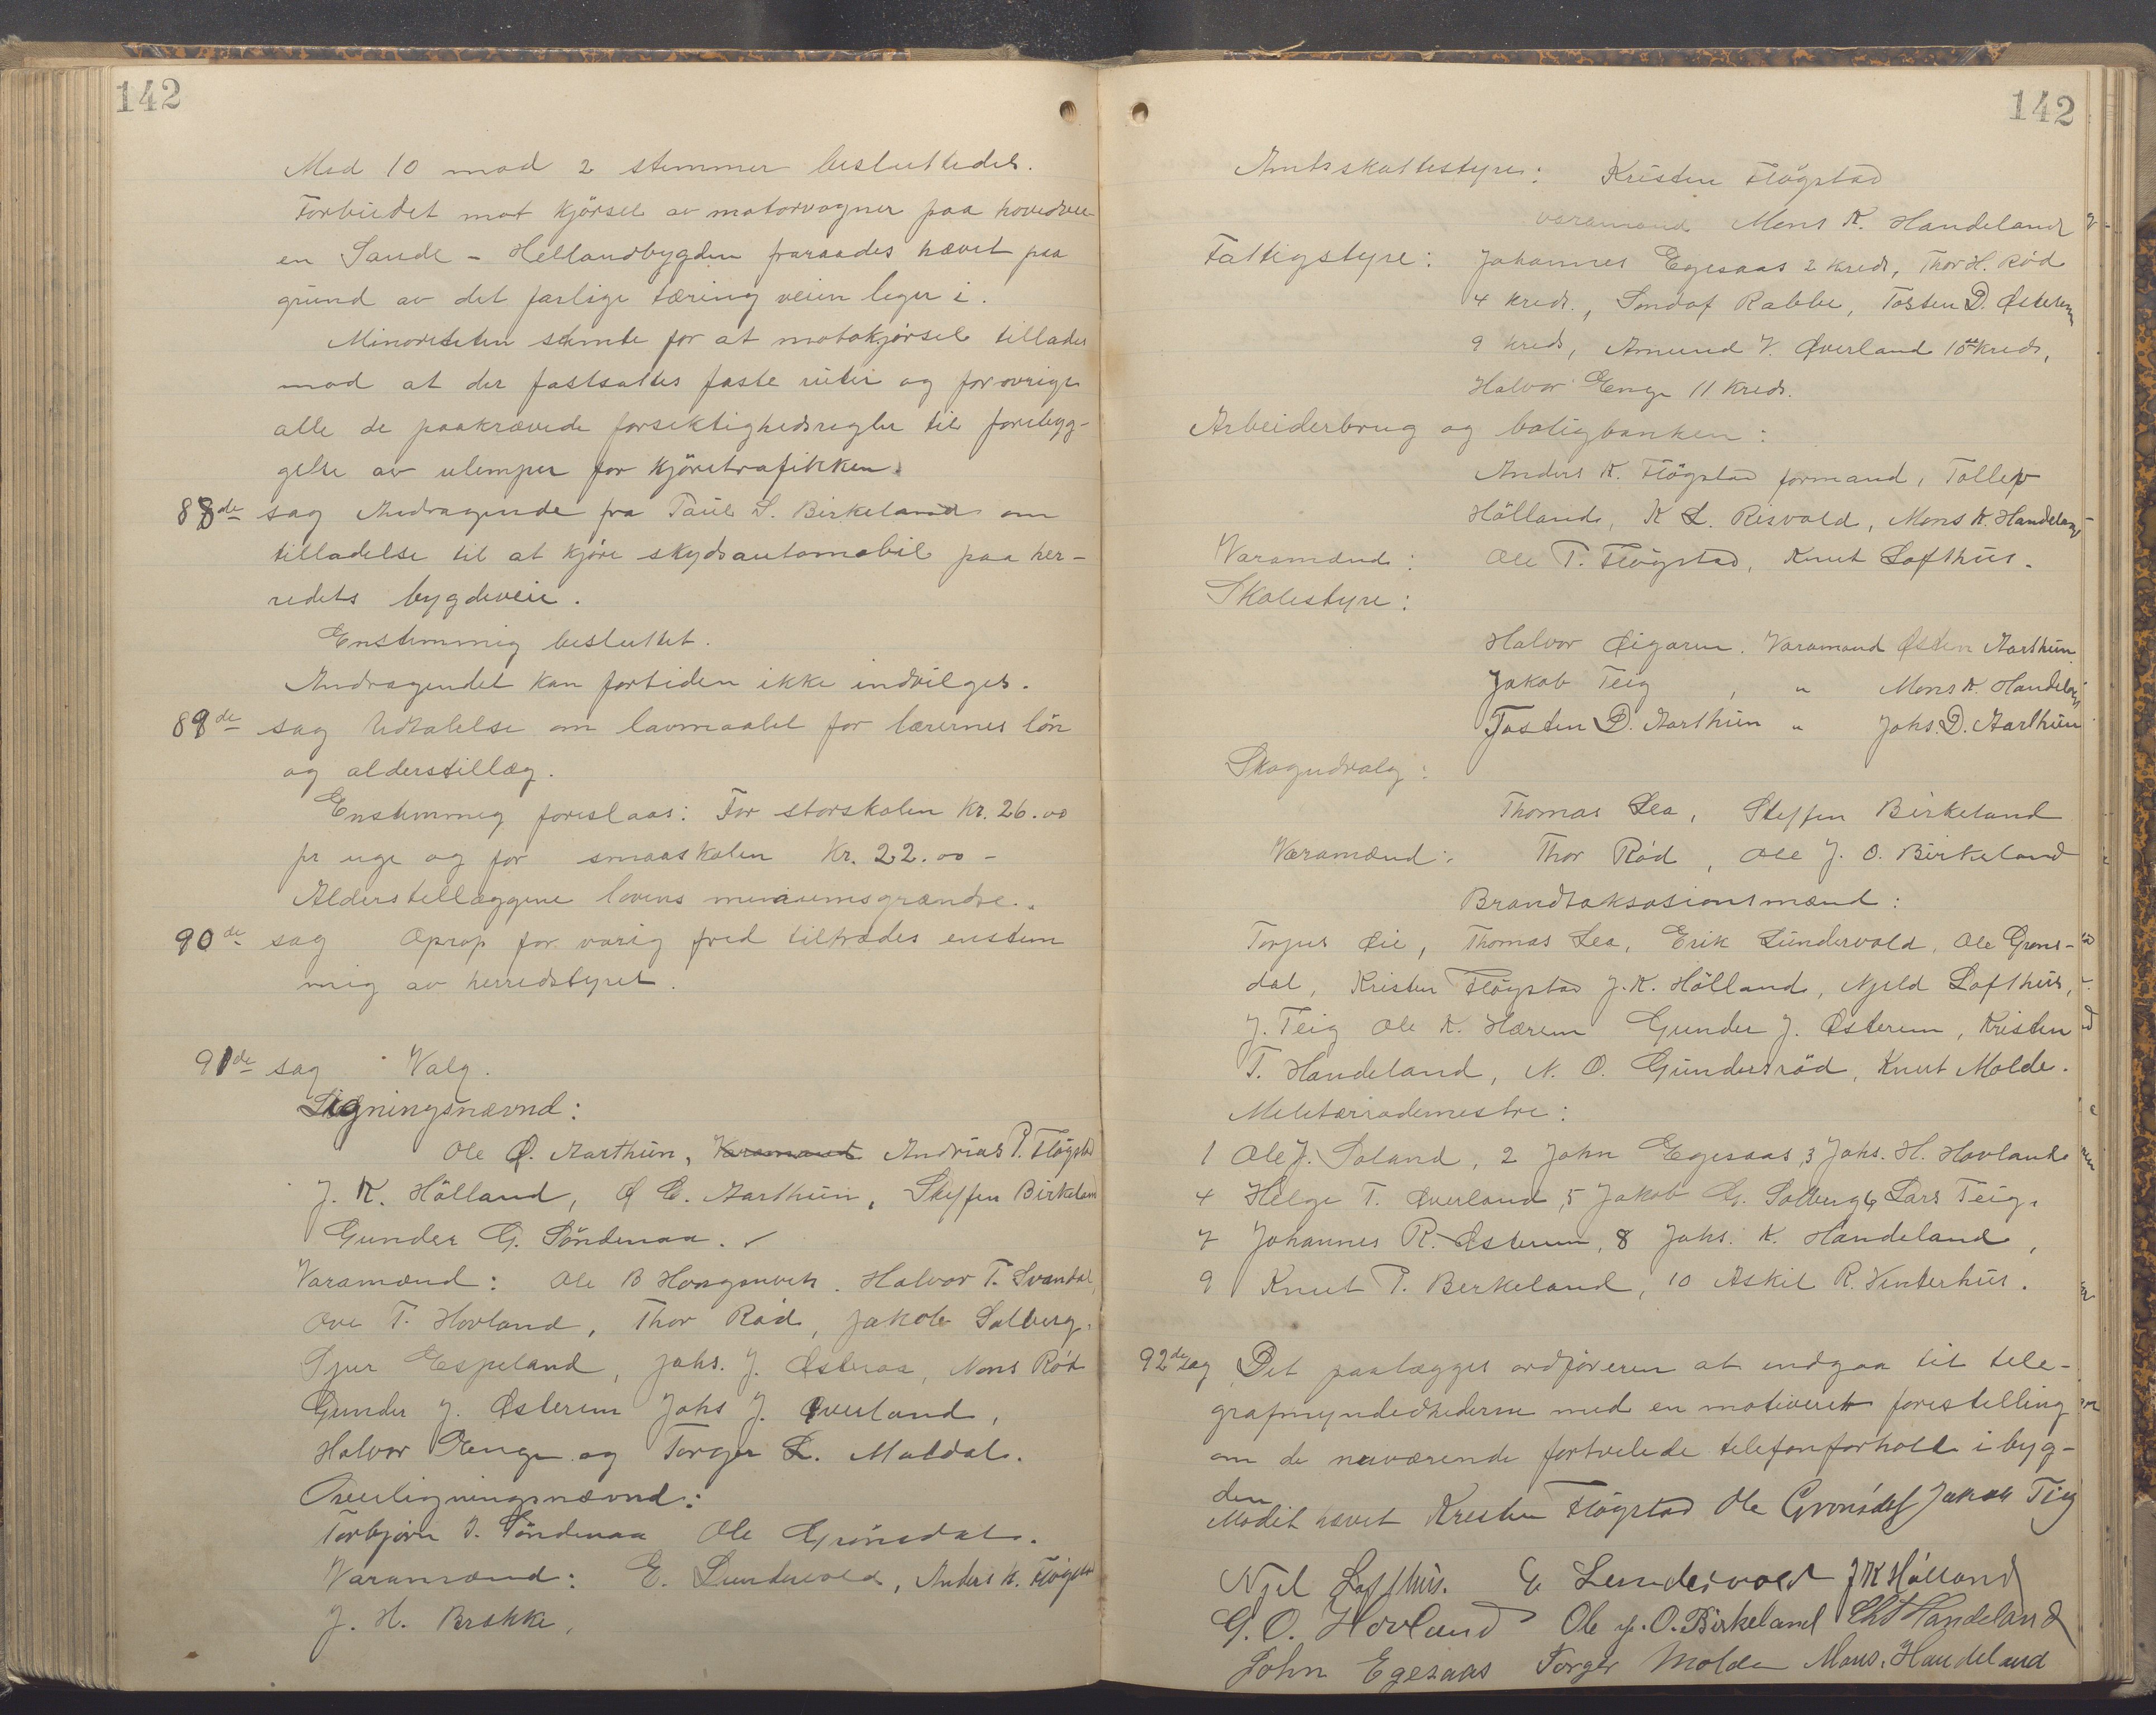 142
Med 10 mod 2 stemmer besluttedes.
Forbudet mot kjørsel av motorvogner paa hovedvei-
en Sande - Hellandbygden fraraades hævet paa
grund av det farlige læring veien leger i.
Minoriteten stemte for at motokjørsel tillades
mod at der fastsættes faste ruter og forøvrigt
alle de paakrævede forsiktighedsregler til forebyg-
gelse av ulemper for kjøretrafikken.
88de sag Andragende fra Paul S. Birkeland om
tilladelse til at kjøre skydsautomobil paa her-
redets bygdeveie.
Enstemmig besluttet.
Andragendet kan fortiden ikke indvilges.
89de sag Udtalelse om lavmaalet for lærernes løn
og alderstillæg.
Enstemmig foreslaas: For storskolen Kr. 26.00
pr uge og for smaaskolen Kr. 22.00 -
Alderstillæggene lovens minimumsgrændse.
90de sag Oprop for varig fred tiltrædes enstem
mig av herredstyret.
91de sag Valg.
Ligningsnævnd:
Ole Ø. Aarthun, Varamand Andrias P. Fløgstad
J. K. Hölland, O E. Aarthun, Steffen Birkeland
Gunder G. Söndenaa.
Varamænd: Ole B Hoogenvik. Halvor T. Svandal,
Ove T. Hovland, Thor Rød, Jakob Solberg.
Sjur Espeland, Johs. J. Østeraa, Mons Rød
Gunder J. Østerem Johs J. Øverland,
Halvor Enge og Torger L. Maldal.
Overligningsnævnd:
Torbjørn J. Söndenaa Ole Grönsdal.
Varamænd: E. Lundervold, Anders K. Fløgstad
J. H. Brakke,
142
Amtsskattestyre: Kristen Flögstad
varamand Mons K. Handeland
Fattigstyre: Johannes Egesaas 2 kreds, Thor H. Rød
4 kreds., Sondof Rabbe, Tosten D. Østerem
9 kreds, Amund V. Øverland 10de kreds,
Halvor Enge 11 kreds.
Arbeiderbrug og boligbanken:
Anders K. Flögstad formand, Tollef
Hölland, K L. Risvold, Mons K. Handeland
Varamænd: Ole T. Flögstad, Knut Lofthus.
Skolestyre:
Halvor Øigaren. Varamand Østen Aarthun
Jakob Teig , " Mons K. Handeland
Tosten D. Aarthun " Johs. D. Aarthun
Skogudvalg:
Thomas Lea, Steffen Birkeland
Varamænd: Thor Rød, Ole J. O. Birkeland
Brandtaksasionsmænd:
Torjus Øie, Thomas Lea, Erik Lundervold, Ole Grøns-
dal, Kristen Flögstad J. K. Hölland, Njeld Lofthus,
J. Teig Ole K. Hærem Gunder J. Østerem, Kristen
T. Handeland, N. O. Gundersrød, Knut Molde.
Militærrodemestre:
1 Ole J. Soland, 2 John Egesaas, 3 Johs. H. Hovland
4 Helge T. Øverland, 5 Jakob G. Solberg 6 Lars Teig.
7 Johannes R. Østerem, 8 Johs. K. Handeland,
9 Knut P. Berkeland, 10 Askil R. Vinterhus.
92de sag Det paalægges ordføreren at indgaa til tele-
grafmyndedhederne med en motiveret forestelling
om de nuværende fortvilede telefonforholde i byg-
den
Mødet hævet Kristen Flögstad Ole Grønsdal Jakob Teig
Njel Lofthus. E Lundervold J K Hölland
G. O. Hovland Ole J. O. Birkeland Chr Handeland
John Egesaas Torger Molde Mons. Handeland